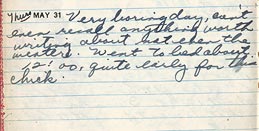 Thurs MAY 31 Very boring day, cant
even recall anything worth
writing about not even the
Went to bed about
12:00, quite early for this
chick.